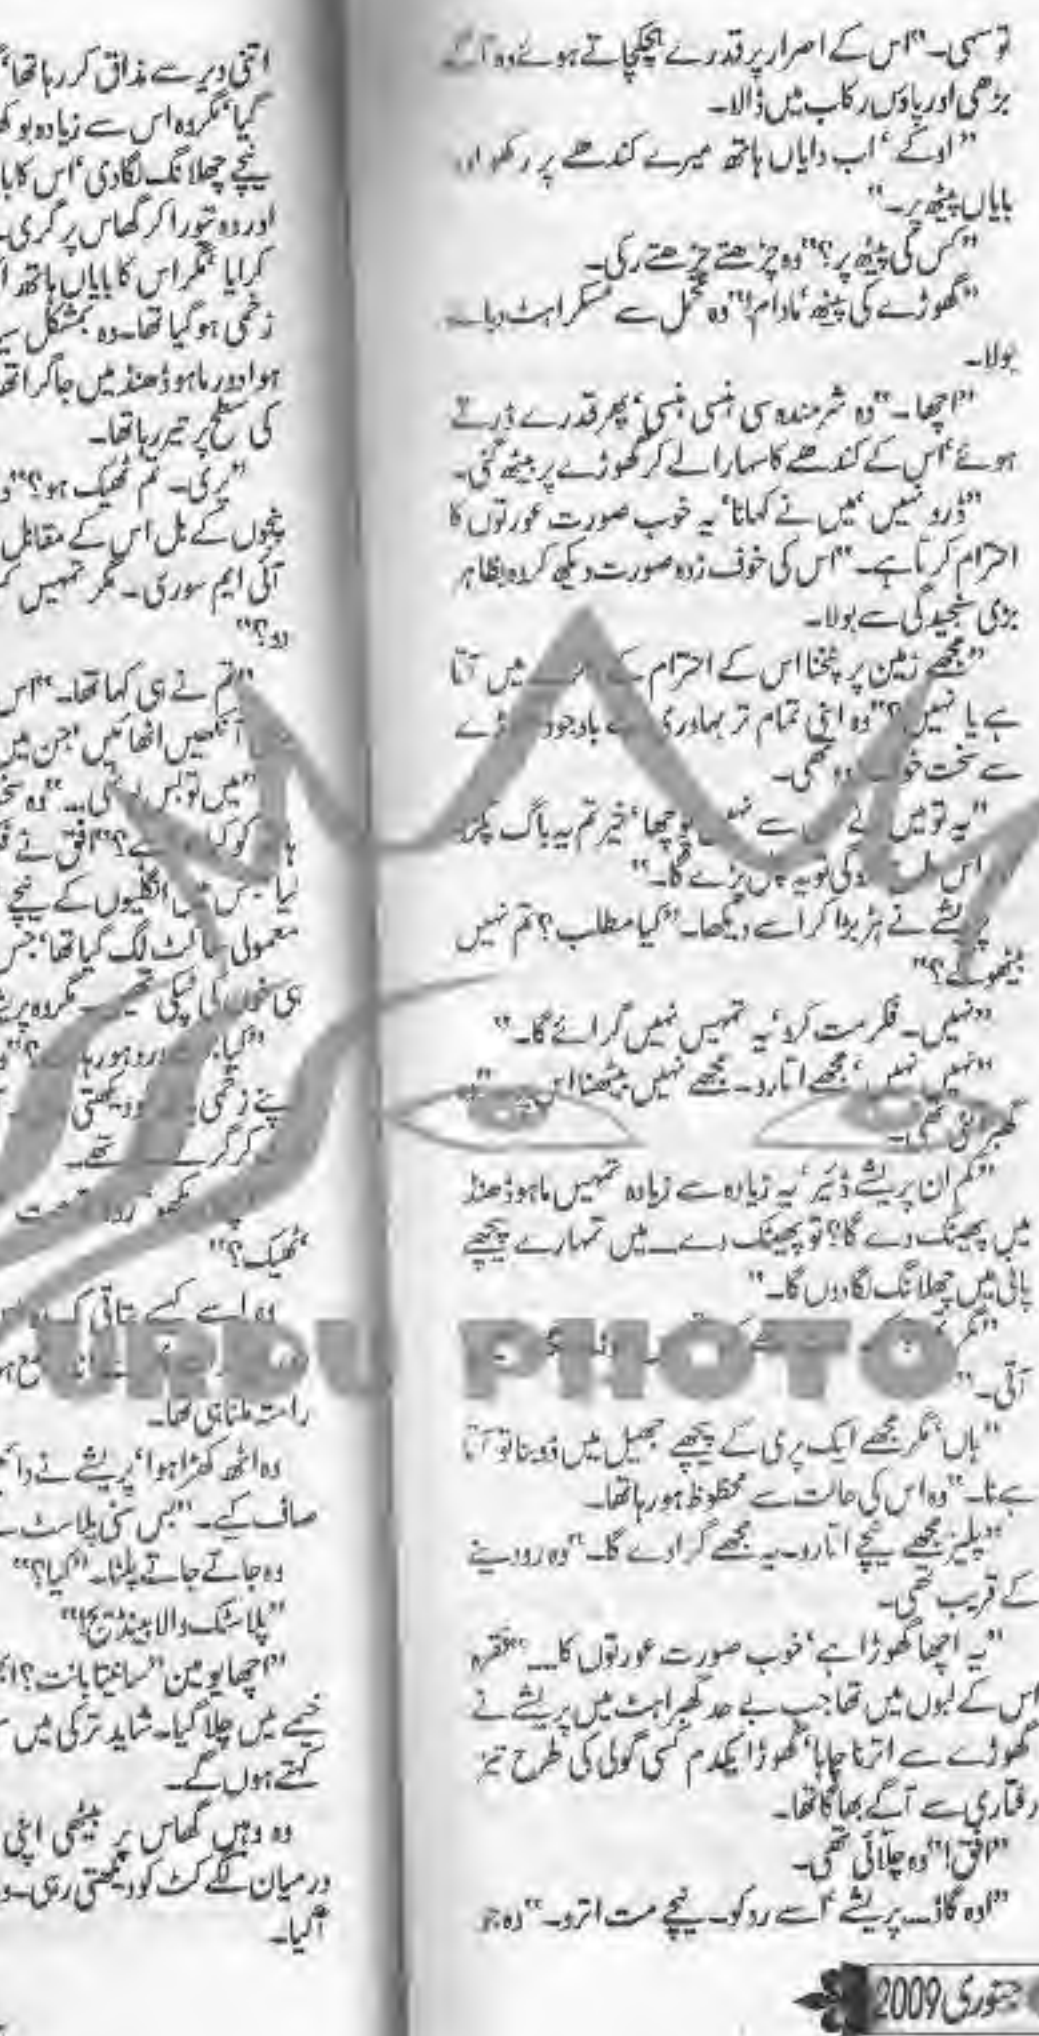 تو سہی۔" اس کے اصرار پر قدرے ہچکچاتے ہوئے وہ آگے
بڑھی اور پاؤں رکاب میں ڈالا۔
"اوکے' اب دایاں ہاتھ میرے کندھے پر رکھو اور
بایاں پیٹھ پر۔"
"کس کی پیٹھ پر؟" وہ چڑھتے چڑھتے رکی۔
"گھوڑے کی پیٹھ' مادام!" وہ تحمل سے مسکراہٹ دبائے
بولا۔
"اچھا۔" وہ شرمندہ سی ہنسی ہنسی' پھر قدرے ڈرتے
ہوئے' اس کے کندھے کا سہارا لے کر گھوڑے پر بیٹھ گئی۔
"ڈرو نہیں' میں نے کہا نا' یہ خوب صورت عورتوں کا
احترام کرتا ہے۔" اس کی خوف زدہ صورت دیکھ کر وہ بظاہر
بڑی سنجیدگی سے بولا۔
"مجھے زمین پر پٹخنا اس کے احترام کے میں آتا
ہے یا نہیں؟" وہ اپنی تمام تر بہادری کے باوجود گھوڑے
سے سخت خوف زدہ تھی۔
"یہ تو میں نے اس سے نہیں پوچھا' خیر تم یہ باگ پکڑو
اس کو گی تو یہ چل پڑے گا۔"
پریشے نے ہڑبڑا کر اسے دیکھا۔ "کیا مطلب؟ تم نہیں
بیٹھو گے؟"
"نہیں۔ فکر مت کرو' یہ تمہیں نہیں گرائے گا۔"
"نہیں نہیں' مجھے اتارو۔ مجھے نہیں بیٹھنا اس
گھبرا گئی تھی۔
"کم ان پریشے ڈئیر' یہ زیادہ سے زیادہ تمہیں ماہوڈھنڈ
میں پھینک دے گا؟ تو پھینک دے۔ میں تمہارے پیچھے
پانی میں چھلانگ لگا دوں گا۔"
"مگر
آتی۔"
"ہاں' مگر مجھے ایک پری کے پیچھے جھیل میں ڈوبنا تو آتا
ہے نا۔" وہ اس کی حالت سے محظوظ ہو رہا تھا۔
"پلیز مجھے نیچے اتارو۔ یہ مجھے گرا دے گا۔" وہ رو دینے
کے قریب تھی۔
"یہ اچھا گھوڑا ہے' خوب صورت عورتوں کا۔۔۔" فقرہ
اس کے لبوں میں تھا جب بے حد گھبراہٹ میں پریشے نے
گھوڑے سے اترنا چاہا' گھوڑا یکدم کسی گولی کی طرح تیز
رفتاری سے آگے بھاگا تھا۔
"افق!" وہ چلائی تھی۔
"اوہ گاڈ۔۔۔ پریشے' اسے روکو۔ نیچے مت اترو۔" وہ جو
جنوری 2009
اتنی دیر سے مذاق کر رہا تھا'
گیا' مگر وہ اس سے زیادہ
نیچے چھلانگ لگا دی' اس کا
اور وہ تیورا کر گھاس پر گری۔
کرایا' مگر اس کا بایاں ہاتھ
زخمی ہو گیا تھا۔ وہ بمشکل
ہوا دور ماہوڈھنڈ میں جا گرا تھا
کی سطح پر تیر رہا تھا۔
"پری۔ تم ٹھیک ہو؟"
پنجوں کے بل اس کے مقابل
آئی ایم سوری۔ مگر تمہیں
رو؟"
"تم نے ہی کہا تھا۔" اس
آنکھیں اٹھائیں' جن میں
"میں تو بس
افق نے
انگلیوں کے نیچے
معمولی سا کٹ لگ گیا تھا' جس
ہی خون کی تھیں۔ مگر وہ
"کیا درد ہو رہا ہے؟"
اپنے زخمی دیکھتی
کر گر تھے۔
'ٹھیک؟"
وہ اسے کیسے بتاتی کہ وہ
راستہ ملنا ہی تھا۔
وہ اٹھ کھڑا ہوا' پریشے نے
صاف کیے۔ "بس سنی پلاسٹ
وہ جاتے جاتے پلٹا۔ "کیا؟"
"پلاسٹک والا بینڈیج!"
"اچھا یو مین "سانیتا بانت؟
خیمے میں چلا گیا۔ شاید ترکی میں
کہتے ہوں گے۔
وہ وہیں گھاس پر بیٹھی اپنی
درمیان لگے کٹ کو دیکھتی رہی۔
آگیا۔
URDU PHOTO